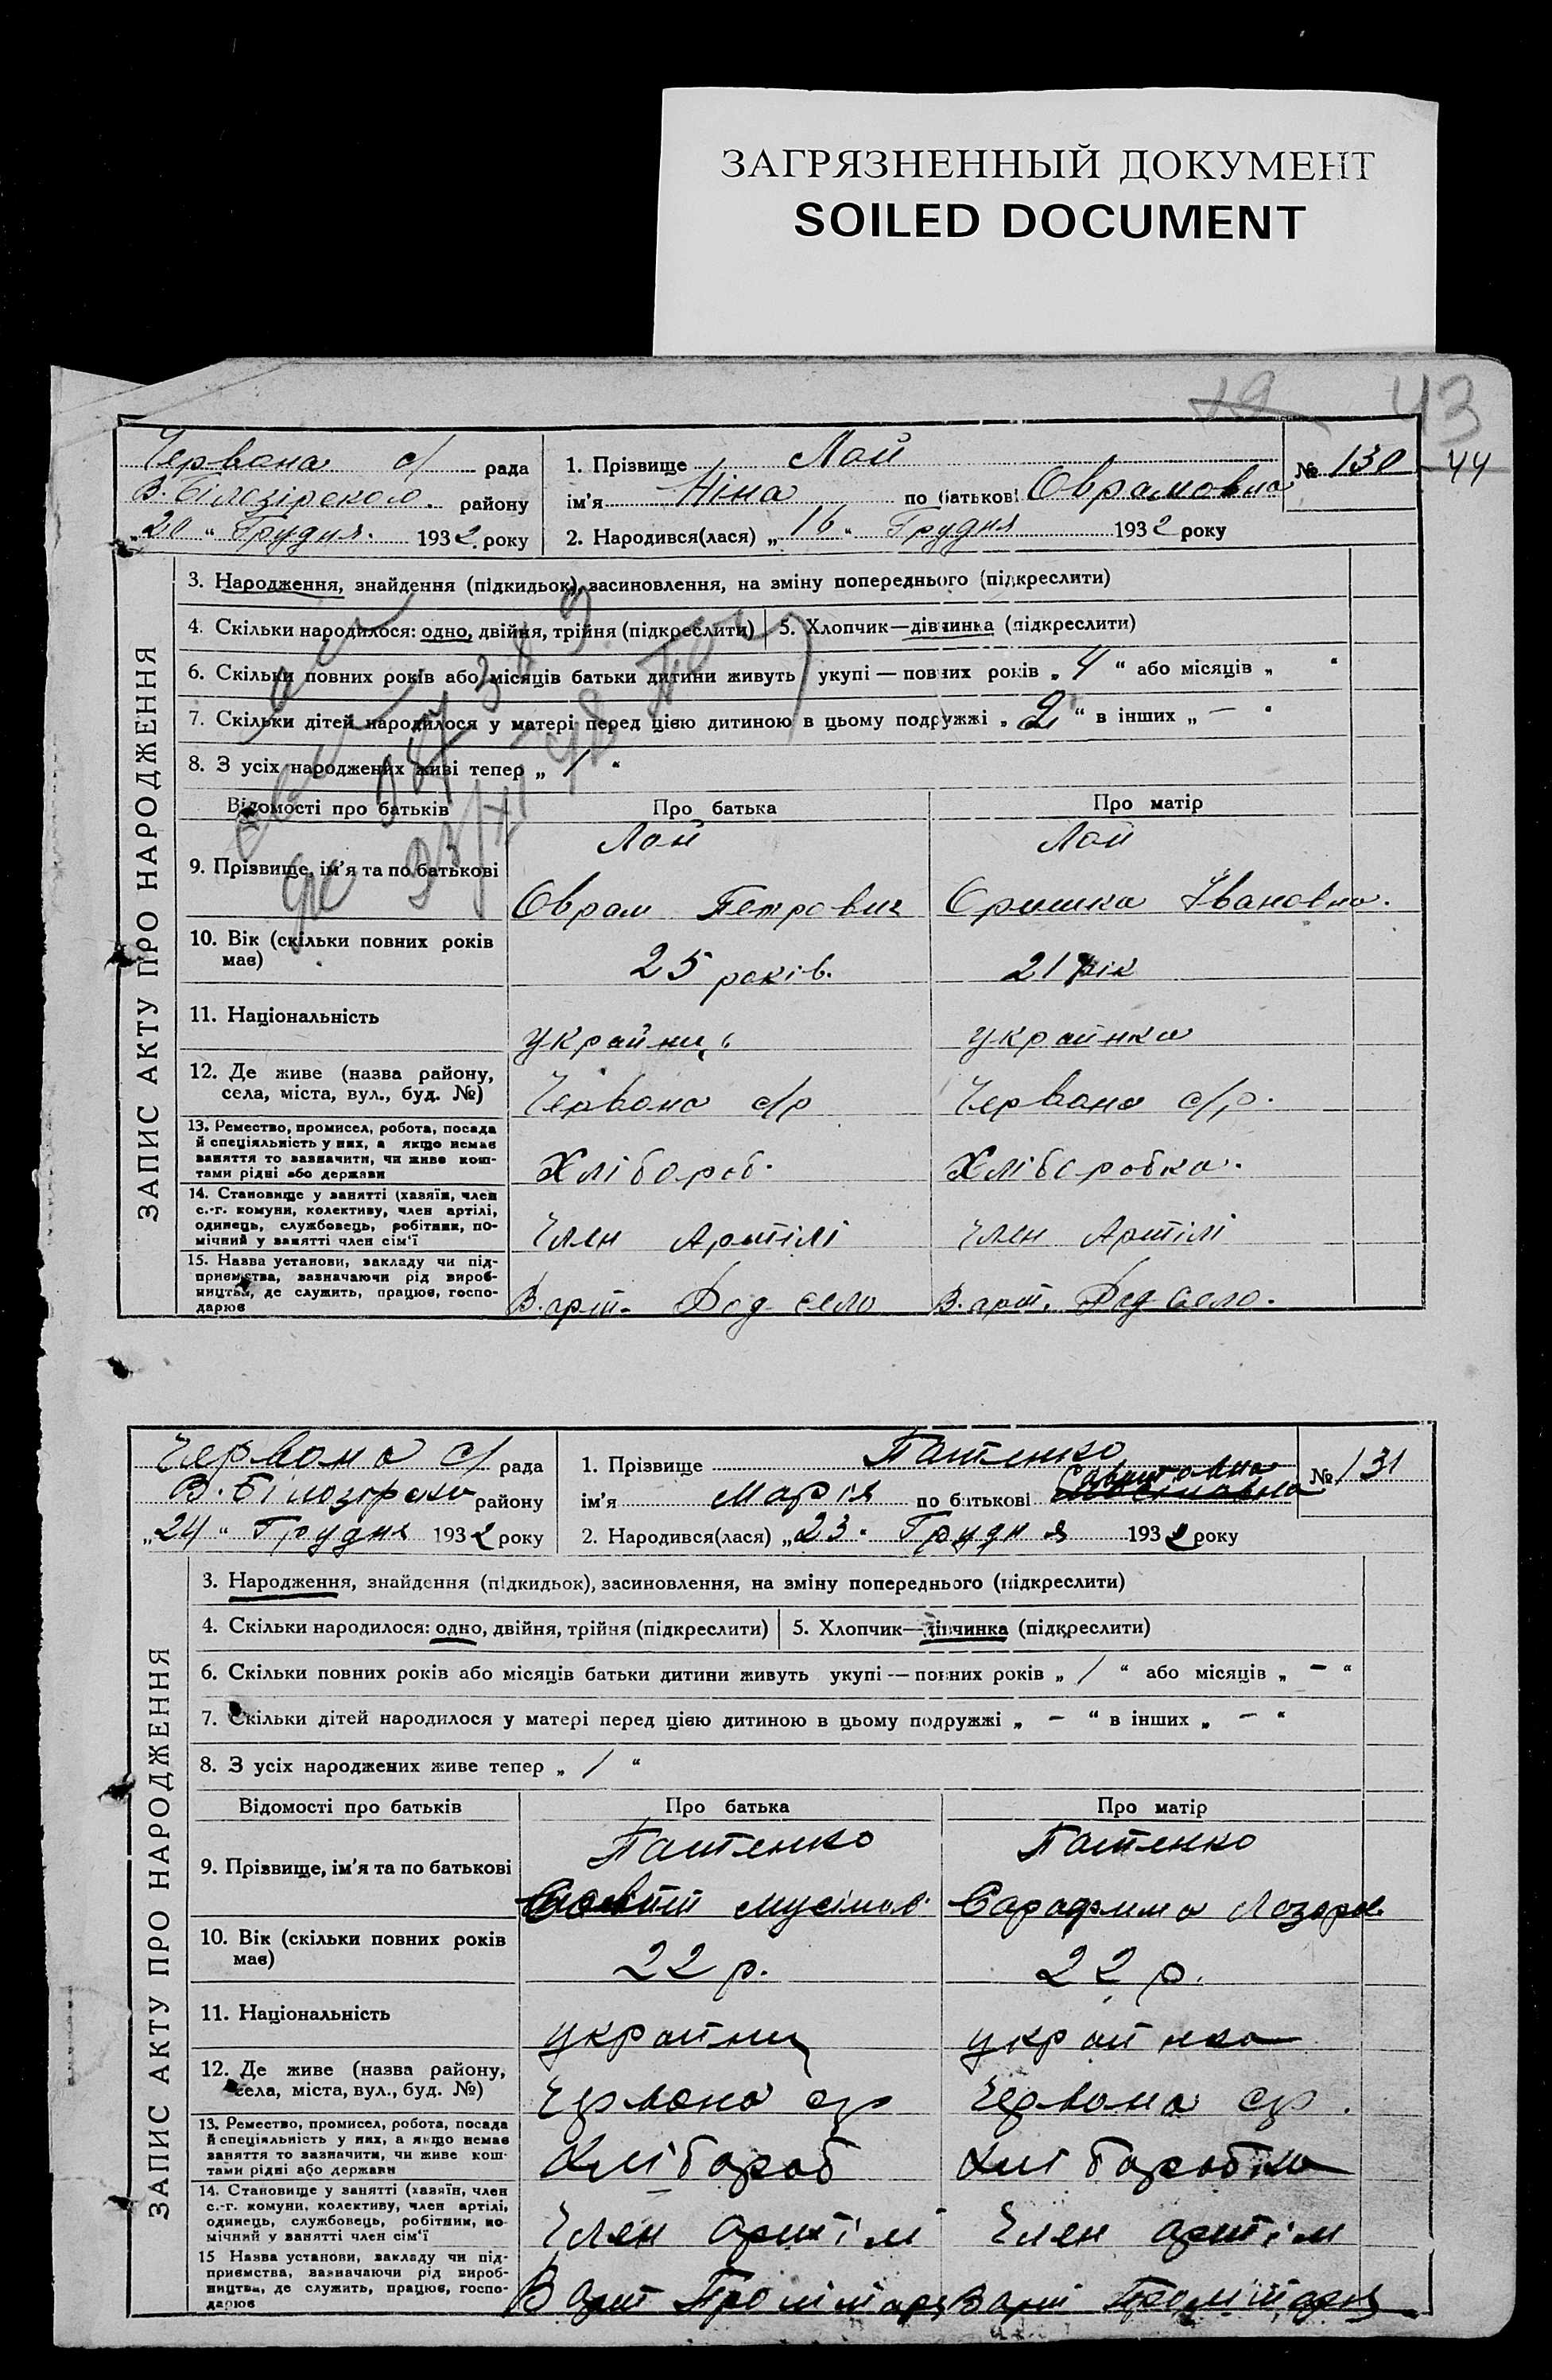 ЗАГРЯЗНЕННЫЙ ДОКУМЕНТ
SOILED DOCUMENT
19 43
44
Червона с/ рада
В. Білозірського району
„20“ Грудня 1932 року
1. Прізвище Лой
ім'я Ніна по батькові Оврамовна
№ 130
2. Народився(лася) „16“ Грудня 1932 року
ЗАПИС АКТУ ПРО НАРОДЖЕННЯ
3. Народження, знайдення (підкидьок), засиновлення, на зміну попереднього (підкреслити)
4. Скільки народилося: одно, двійня, трійня (підкреслити) 5. Хлопчик—дівчинка (підкреслити)
6. Скільки повних років або місяців батьки дитини живуть укупі — повних років „4“ або місяців „ “
7. Скільки дітей народилося у матері перед цією дитиною в цьому подружжі „2“ в інших „—“
8. З усіх народжених живі тепер „1“
Відомості про батьків Про батька Про матір
9. Прізвище, ім'я та по батькові
Лой Лой
Оврам Петрович Оришка Івановна.
10. Вік (скільки повних років має) 25 років. 21 рік
11. Національність українць українка
12. Де живе (назва району,
села, міста, вул., буд. №) Червона с/р Червона с/р.
13. Ремество, промисел, робота, посада
й спеціяльність у них, а якщо немає
заняття то зазначити, чи живе кош-
тами рідні або держави Хлібороб. Хліборобка.
14. Становище у занятті (хазяїн, член
с.-г. комуни, колективу, член артілі,
одинець, службовець, робітник, по-
мічний у занятті член сім'ї Член Артілі Член Артілі
15. Назва установи, закладу чи під-
приємства, зазначаючи рід вироб-
ництва, де служить, працює, госпо-
дарює В. арт. Рад село В. арт. Рад село.
Червона с/ рада
В. Білозірсько району
„24“ Грудня 1932 року
1. Прізвище Патенко
ім'я Марія по батькові
№ 131
2. Народився(лася) „23“ Грудня 1932 року
ЗАПИС АКТУ ПРО НАРОДЖЕННЯ
3. Народження, знайдення (підкидьок), засиновлення, на зміну попереднього (підкреслити)
4. Скільки народилося: одно, двійня, трійня (підкреслити) 5. Хлопчик—дівчинка (підкреслити)
6. Скільки повних років або місяців батьки дитини живуть укупі — повних років „1“ або місяців „—“
7. Скільки дітей народилося у матері перед цією дитиною в цьому подружжі „—“ в інших „—“
8. З усіх народжених живе тепер „1“
Відомості про батьків Про батька Про матір
9. Прізвище, ім'я та по батькові
Патенко Патенко
Мусіїов Сарафима Лозаре.
10. Вік (скільки повних років має) 22 р. 22 р.
11. Національність українц українка
12. Де живе (назва району,
села, міста, вул., буд. №) Червона ср Червона ср.
13. Ремество, промисел, робота, посада
й спеціяльність у них, а якщо немає
заняття то зазначити, чи живе кош-
тами рідні або держави Хлібороб Хліборобка
14. Становище у занятті (хазяїн, член
с.-г. комуни, колективу, член артілі,
одинець, службовець, робітник, по-
мічний у занятті член сім'ї Член артілі Член артілі
15 Назва установи, закладу чи під-
приємства, зазначаючи рід вироб-
ництва, де служить, працює, госпо-
дарює В арт Пролітарц В арт Пролітарц